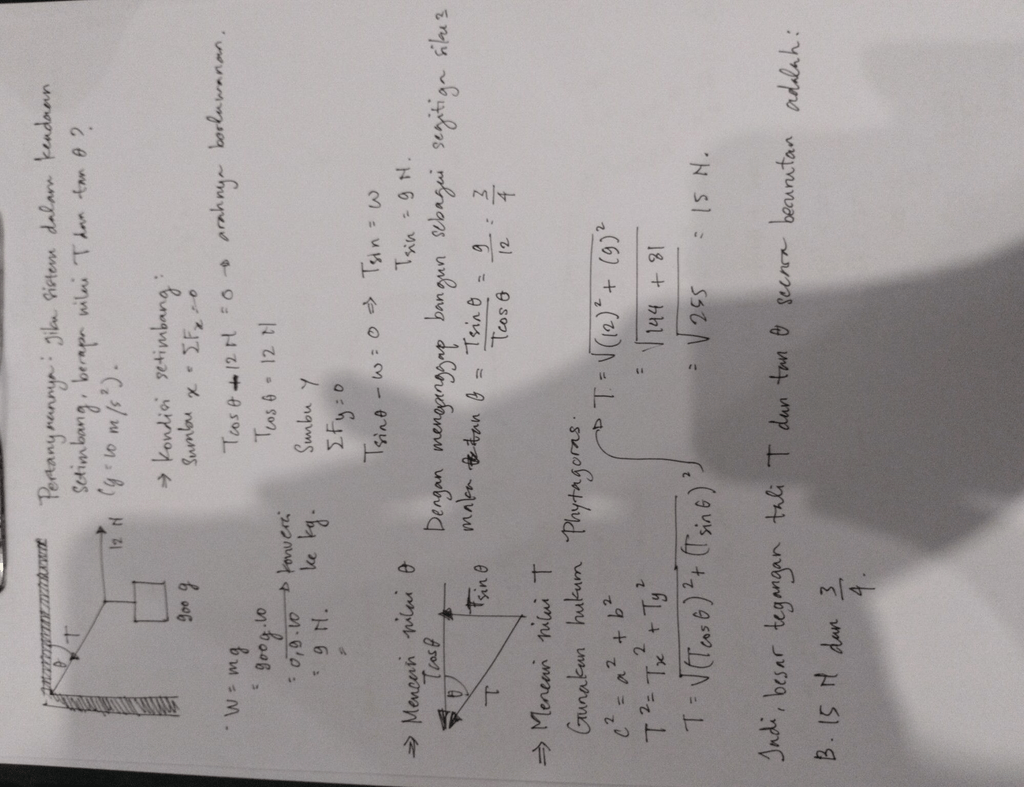 Pertanyaannya: jika sistem dalam keadaan
setimbang, berapa nilai T dan tan θ?
(g = 10 m/s²).
θ
T
12 N
900 g
⇒ Kondisi setimbang:
Sumbu x = ΣFx = 0
T cos θ + 12 N = 0 → arahnya berlawanan.
T cos θ = 12 N
Sumbu Y
ΣFy = 0
T sin θ - w = 0 ⇒ T sin = w
T sin = 9 N.
· W = mg
= 900 g . 10
= 0,9 . 10 → konversi
ke kg.
= 9 N.
⇒ Mencari nilai θ
T cos θ
θ
T
T sin θ
Dengan menganggap bangun sebagai segitiga siku2
maka tan θ = T sin θ / T cos θ = 9/12 = 3/4
⇒ Mencari nilai T
Gunakan hukum Phytagoras.
c² = a² + b²
T² = Tx² + Ty²
T = √(T cos θ)² + (T sin θ)²
→ T = √(12)² + (9)²
= √144 + 81
= √255 = 15 N.
Jadi, besar tegangan tali T dan tan θ secara berurutan adalah:
B. 15 N dan 3/4.